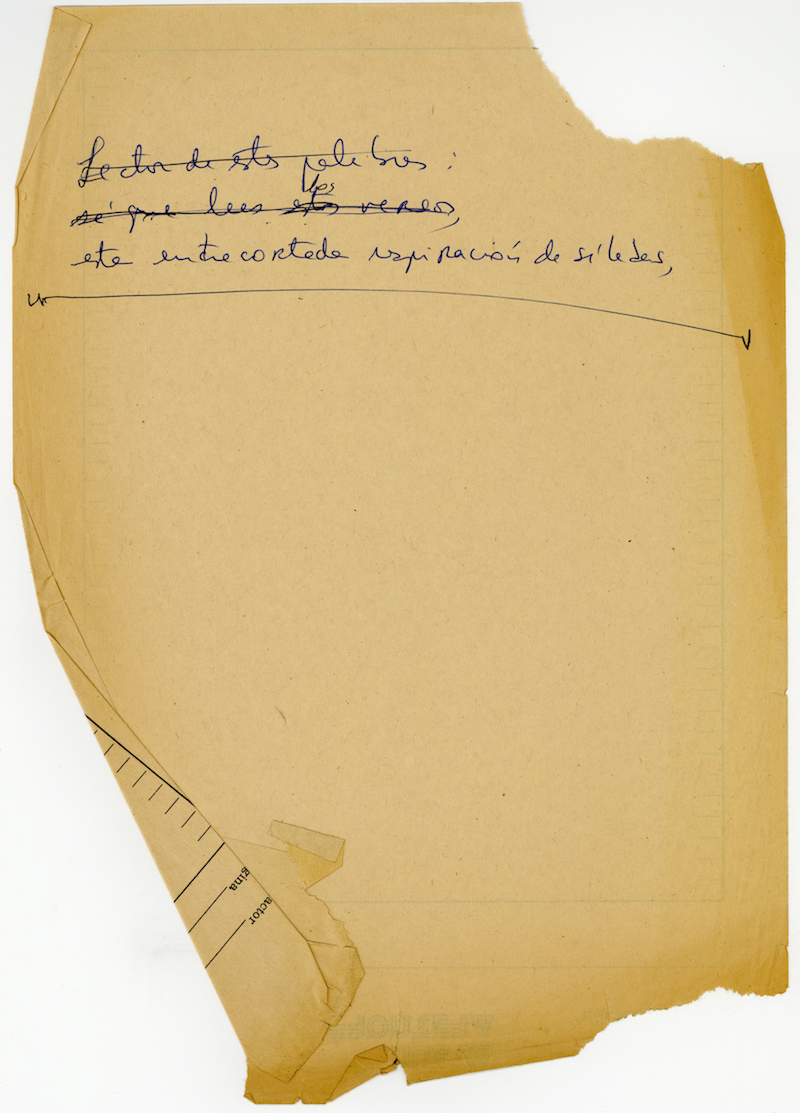 Lector de estas palabras:
los
sé que lees estos versos,
esta entrecortada respiración de sílabas,
gina
actor